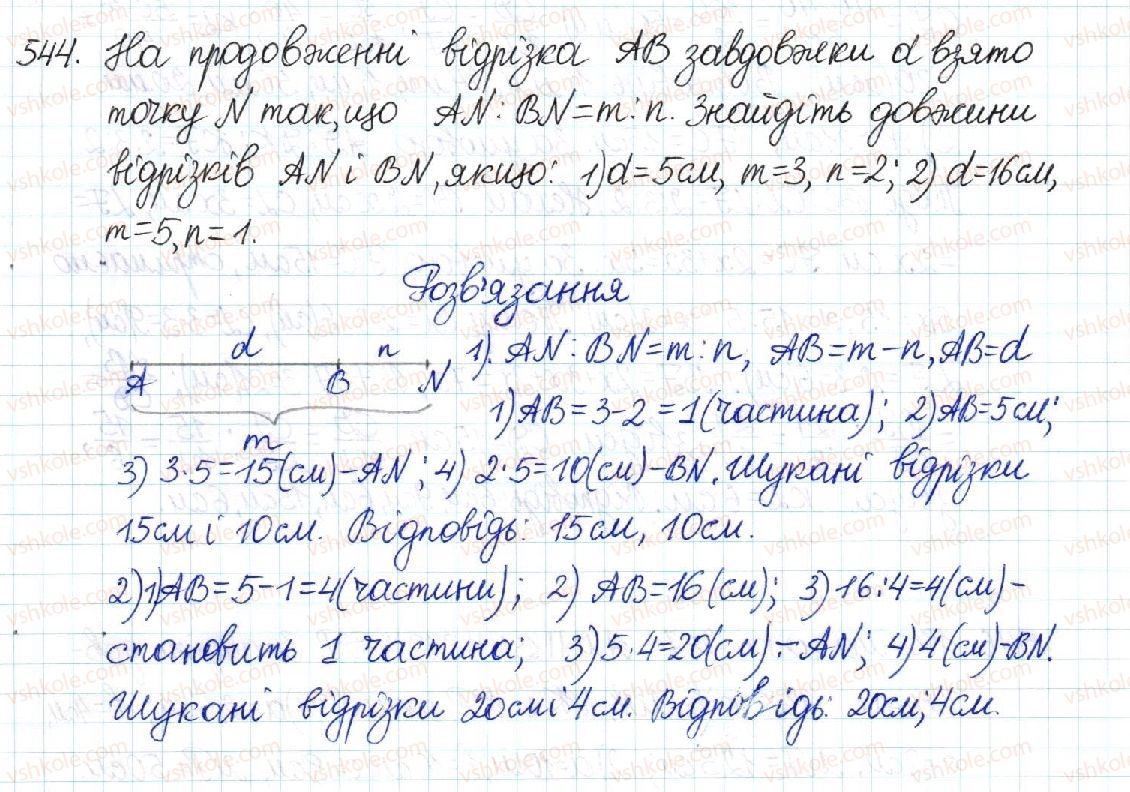 544. На продовженні відрізка AB завдовжки d взято
точку N так, що AN : BN = m : n. Знайдіть довжини
відрізків AN і BN, якщо: 1) d=5см, m=3, n=2; 2) d=16см,
m=5, n=1.
Розв'язання
d n
A B N
m
1). AN : BN = m : n, AB = m - n, AB = d
1) AB = 3-2 = 1 (частина); 2) AB=5см;
3) 3·5=15(см) - AN; 4) 2·5=10(см) - BN. Шукані відрізки
15см і 10см. Відповідь: 15см, 10см.
2) 1) AB = 5-1=4(частини); 2) AB=16(см); 3) 16:4=4(см) -
становить 1 частина; 3) 5·4=20(см) - AN; 4) 4(см)-BN.
Шукані відрізки 20см і 4см. Відповідь: 20см; 4см.
vshkole.com